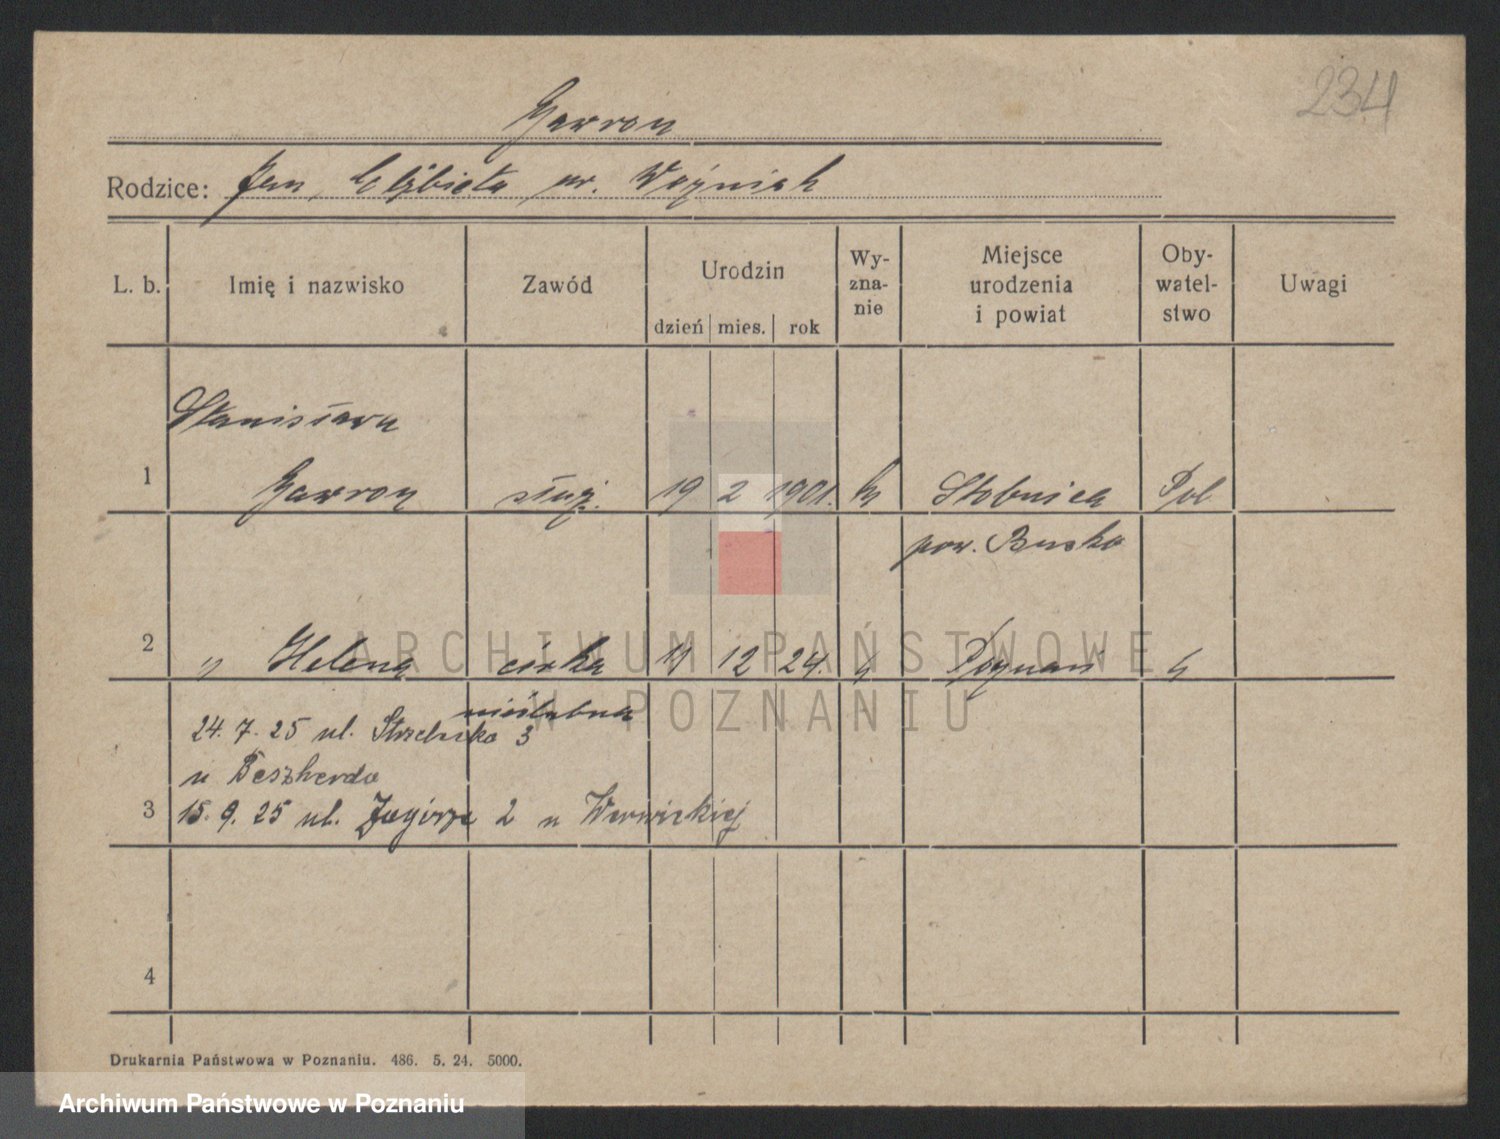 234
Gawron
Rodzice: Jan, Elżbieta ur. Woźniak
L. b. Imię i nazwisko Zawód Urodzin dzień mies. rok Wy-zna-nie Miejsce urodzenia i powiat Oby-watel-stwo Uwagi
Stanisława
1 Gawron służ. 19 2 1901. k Stobnica Pol
pow. Busko
2 " Helena córka 11 12 24. " Poznań "
nieślubna
24. 7. 25 ul. Strzelecka 3
u
3 15. 9. 25 ul. Zagórze 2 u
4
Drukarnia Państwowa w Poznaniu. 486. 5. 24. 5000.
ARCHIWUM PAŃSTWOWE
W POZNANIU
Archiwum Państwowe w Poznaniu